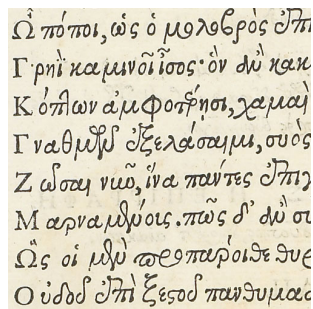 Ὢ πόποι, ὡς ὁ μολοβρὸς ἐπι
Γρηῒ καμινοῖ ἶσος· ὃν ἂν κακ
Κόπτων ἀμφοτέρῃσι, χαμαὶ
Γναθμῶν ἐξελάσαιμι, συὸς
Ζῶσαι νῦν, ἵνα πάντες ἐπιγ
Μαρναμένοις. πῶς δ' ἂν σὺ
Ὣς οἱ μὲν προπάροιθε θυρ
Οὐδοῦ ἐπὶ ξεστοῦ πανθυμαδ